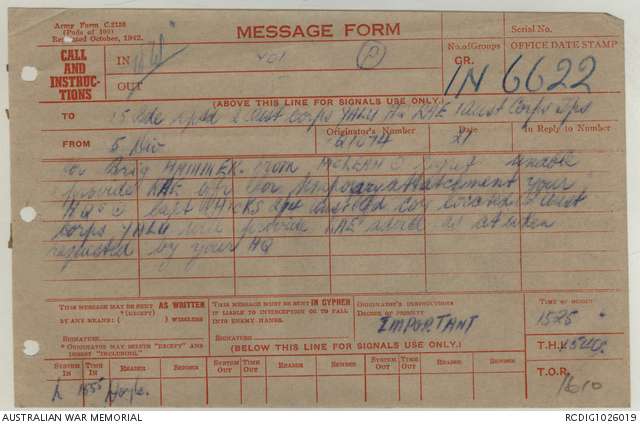 Army Form C.2136
(Pads of 100)
Revised October, 1942.
MESSAGE FORM
Serial No.
CALL
AND
INSTRUC-
TIONS
IN
OUT
No. of Groups
GR.
OFFICE DATE STAMP
IN 6622
(ABOVE THIS LINE FOR SIGNALS USE ONLY.)
TO 15 Bde rptd 2 Aust Corps YALU RAE 1 Aust Corps Tps
FROM 5 Div
Originator's Number
Date 21
In Reply to Number
for Brig HAMMER from McLEAN unable
provide RAE offr for temporary attachment your
HQ Capt coy located 2 Aust
corps YALU will provide RAE advice as when
requested by your HQ
THIS MESSAGE MAY BE SENT AS WRITTEN
(EXCEPT)
BY ANY MEANS ( ) WIRELESS
SIGNATURE
* ORIGINATOR MAY DELETE "EXCEPT" AND
INSERT "INCLUDING."
THIS MESSAGE MUST BE SENT IN CYPHER
IF LIABLE TO INTERCEPTION OR TO FALL
INTO ENEMY HANDS.
SIGNATURE
ORIGINATOR'S INSTRUCTIONS
DEGREE OF PRIORITY
IMPORTANT
TIME OF ORIGIN
1525
T.H.I.
(BELOW THIS LINE FOR SIGNALS USE ONLY.)
SYSTEM IN TIME IN READER SENDER SYSTEM OUT TIME OUT READER SENDER SYSTEM OUT TIME OUT READER SENDER
T.O.R.
1610
AUSTRALIAN WAR MEMORIAL
RCDIG1026019